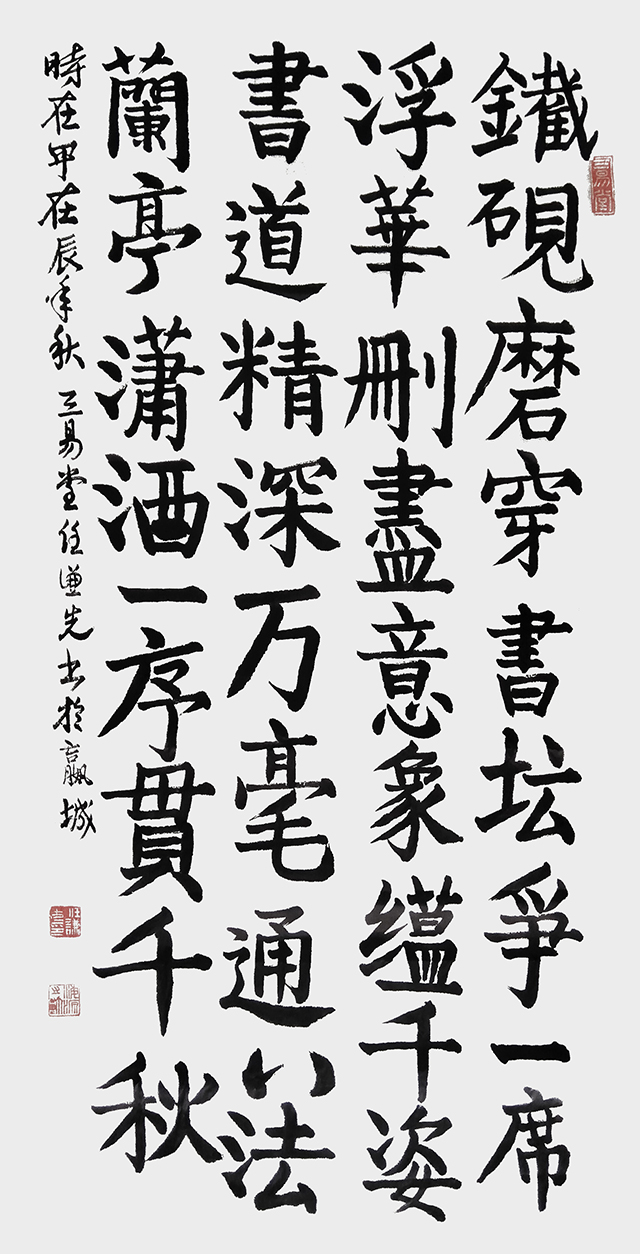 鐵硯磨穿書坛爭一席
浮華刪盡意象緼千姿
書道精深万毫通八法
蘭亭瀟洒一序貫千秋
時在甲在辰年秋三易堂任谦先书於嬴城